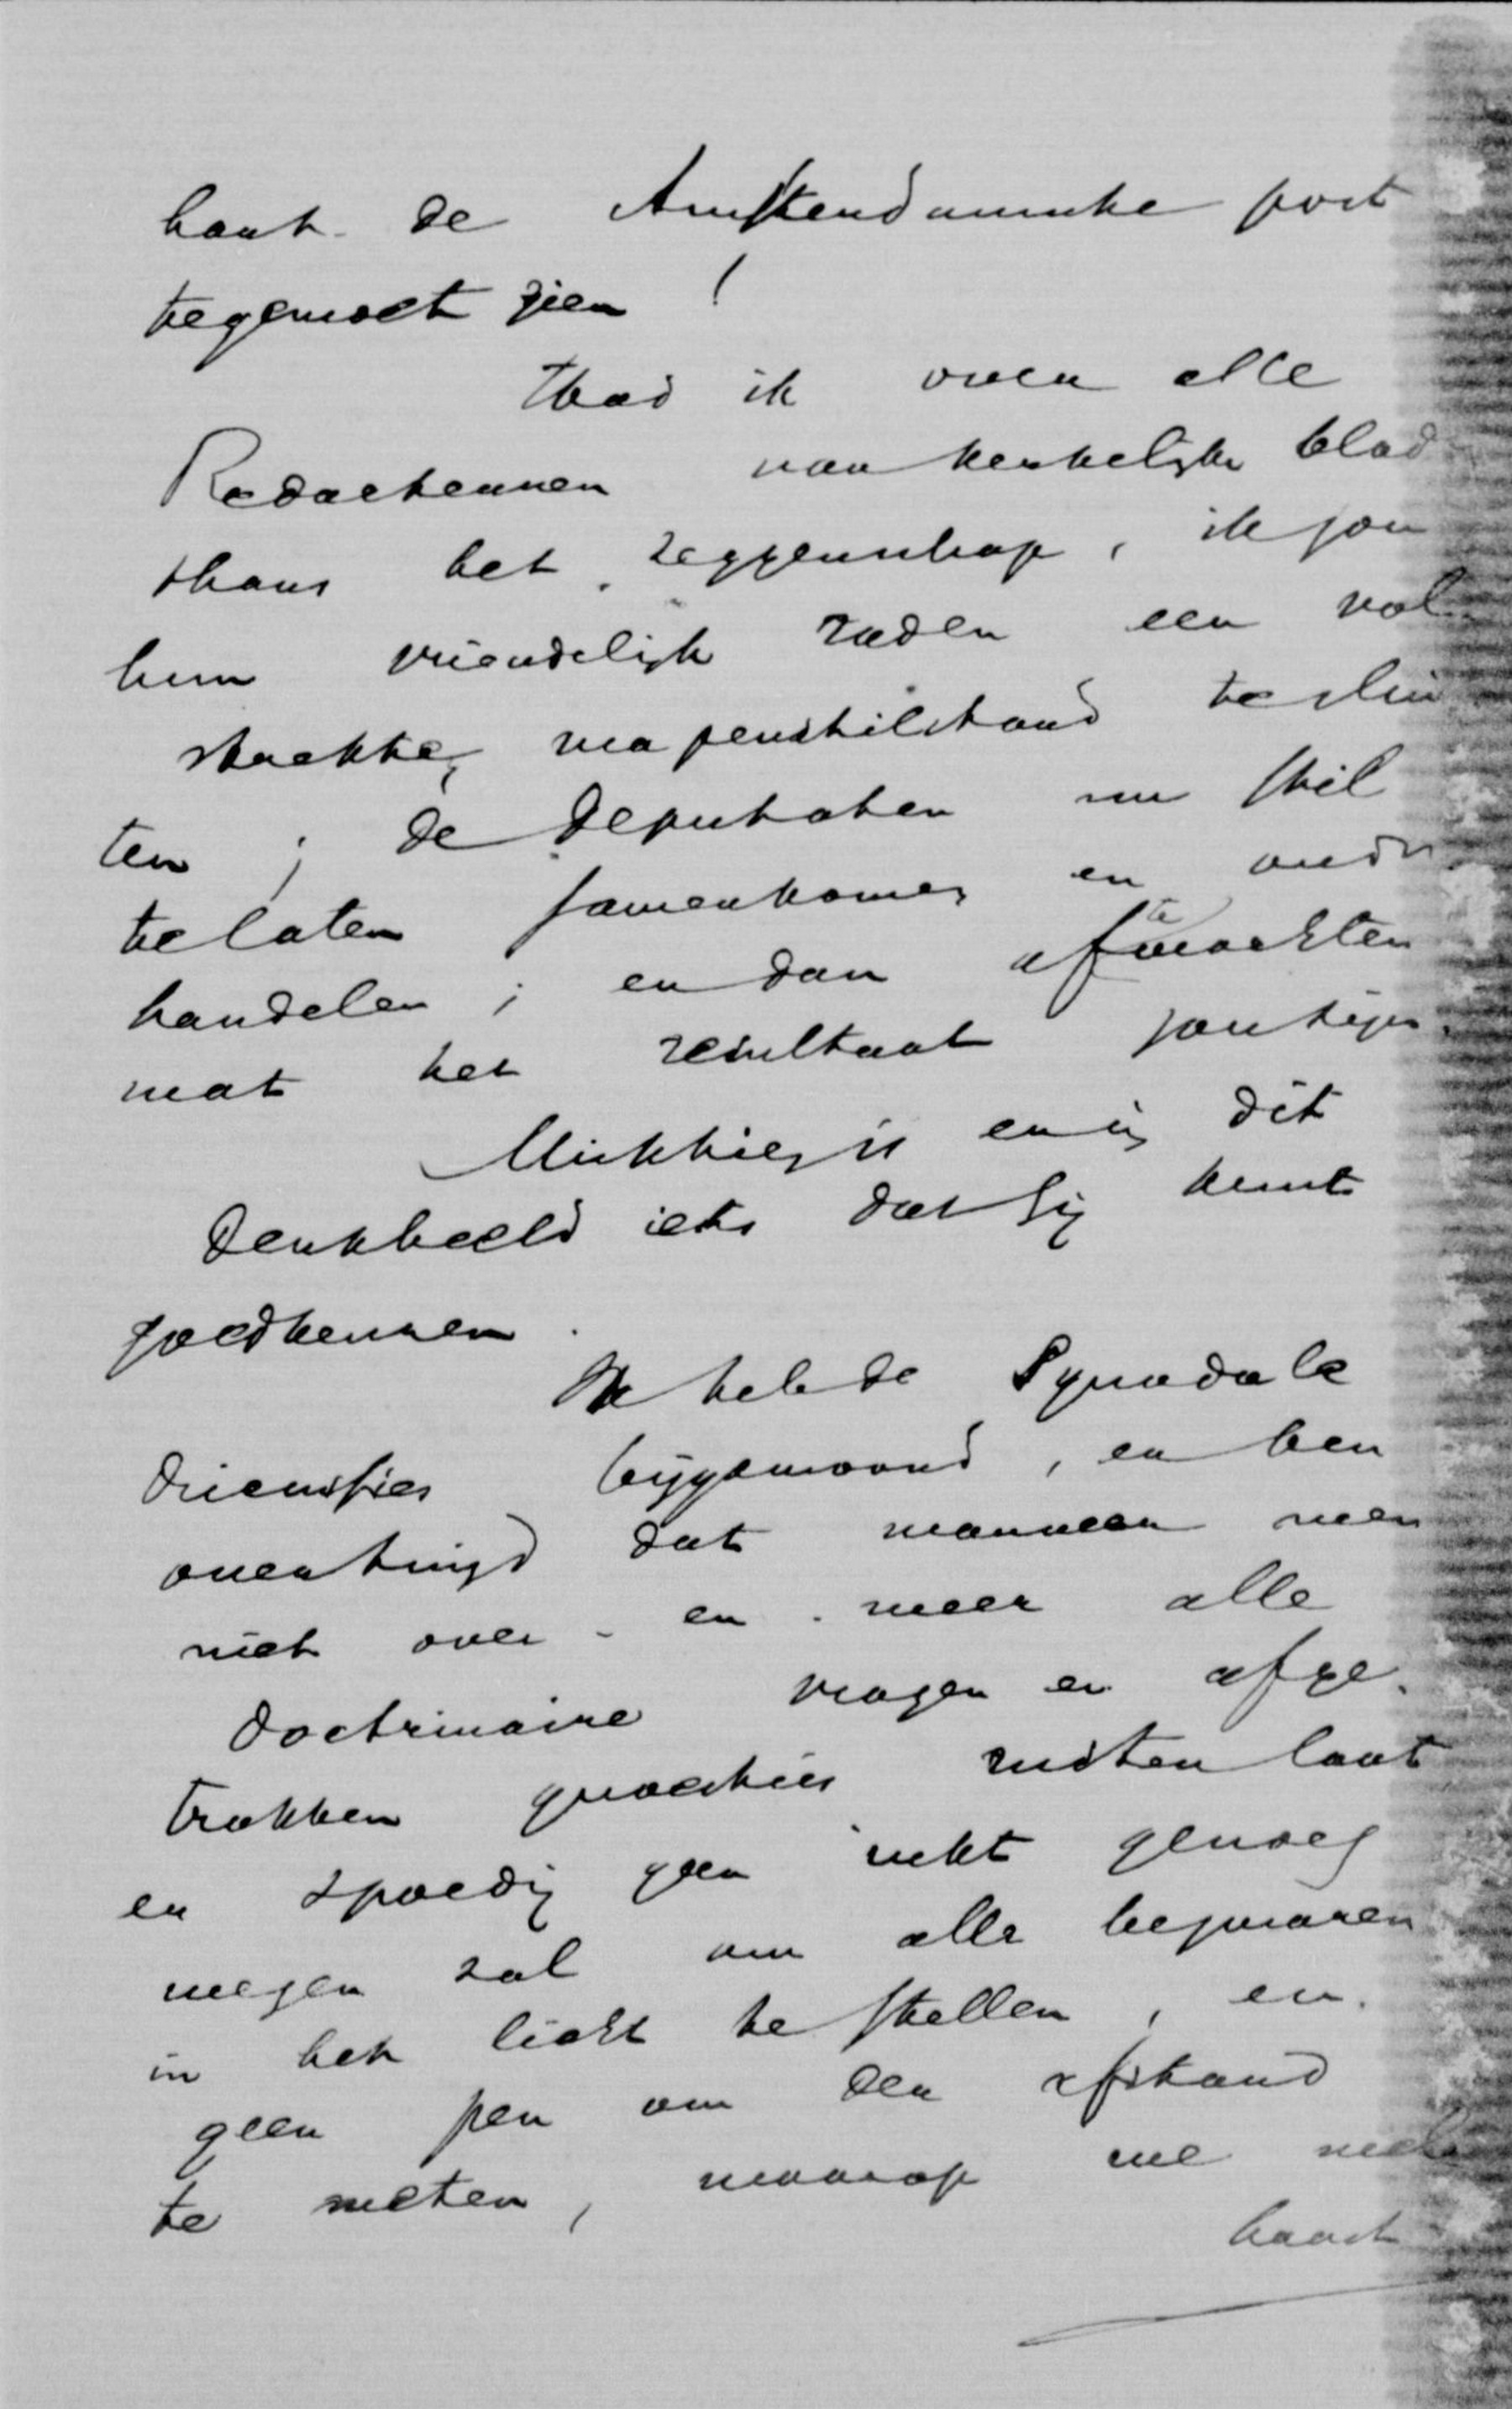 haast de Amsterdamsche post
tegemoet zien !
Had ik over alle
Redacteuren van kerkelijke blad
thans het zeggenschap, ik zou
hun vriendelijk raden een vol
strekte, wapenstilstand te slui
ten ; de Deputaten nu stil
te laten samenkomen en onder
handelen ; en dan af te wachten
wat het resultaat zou zijn.
Misschien is er in dit
denkbeeld iets dat Gij kunt
goedkeuren.
Ik heb de Synodale
driemisjes bijgewoond, en ben
overtuigd dat wanneer men
niet over- en weer alle
doctrinaire vragen en afge-
trokken quaesties rusten laat
er spoedig geen inkt genoeg
wezen zal om alle bezwaren
in het licht te stellen, en
geen pen om den afstand
te meten, waarop we
haast